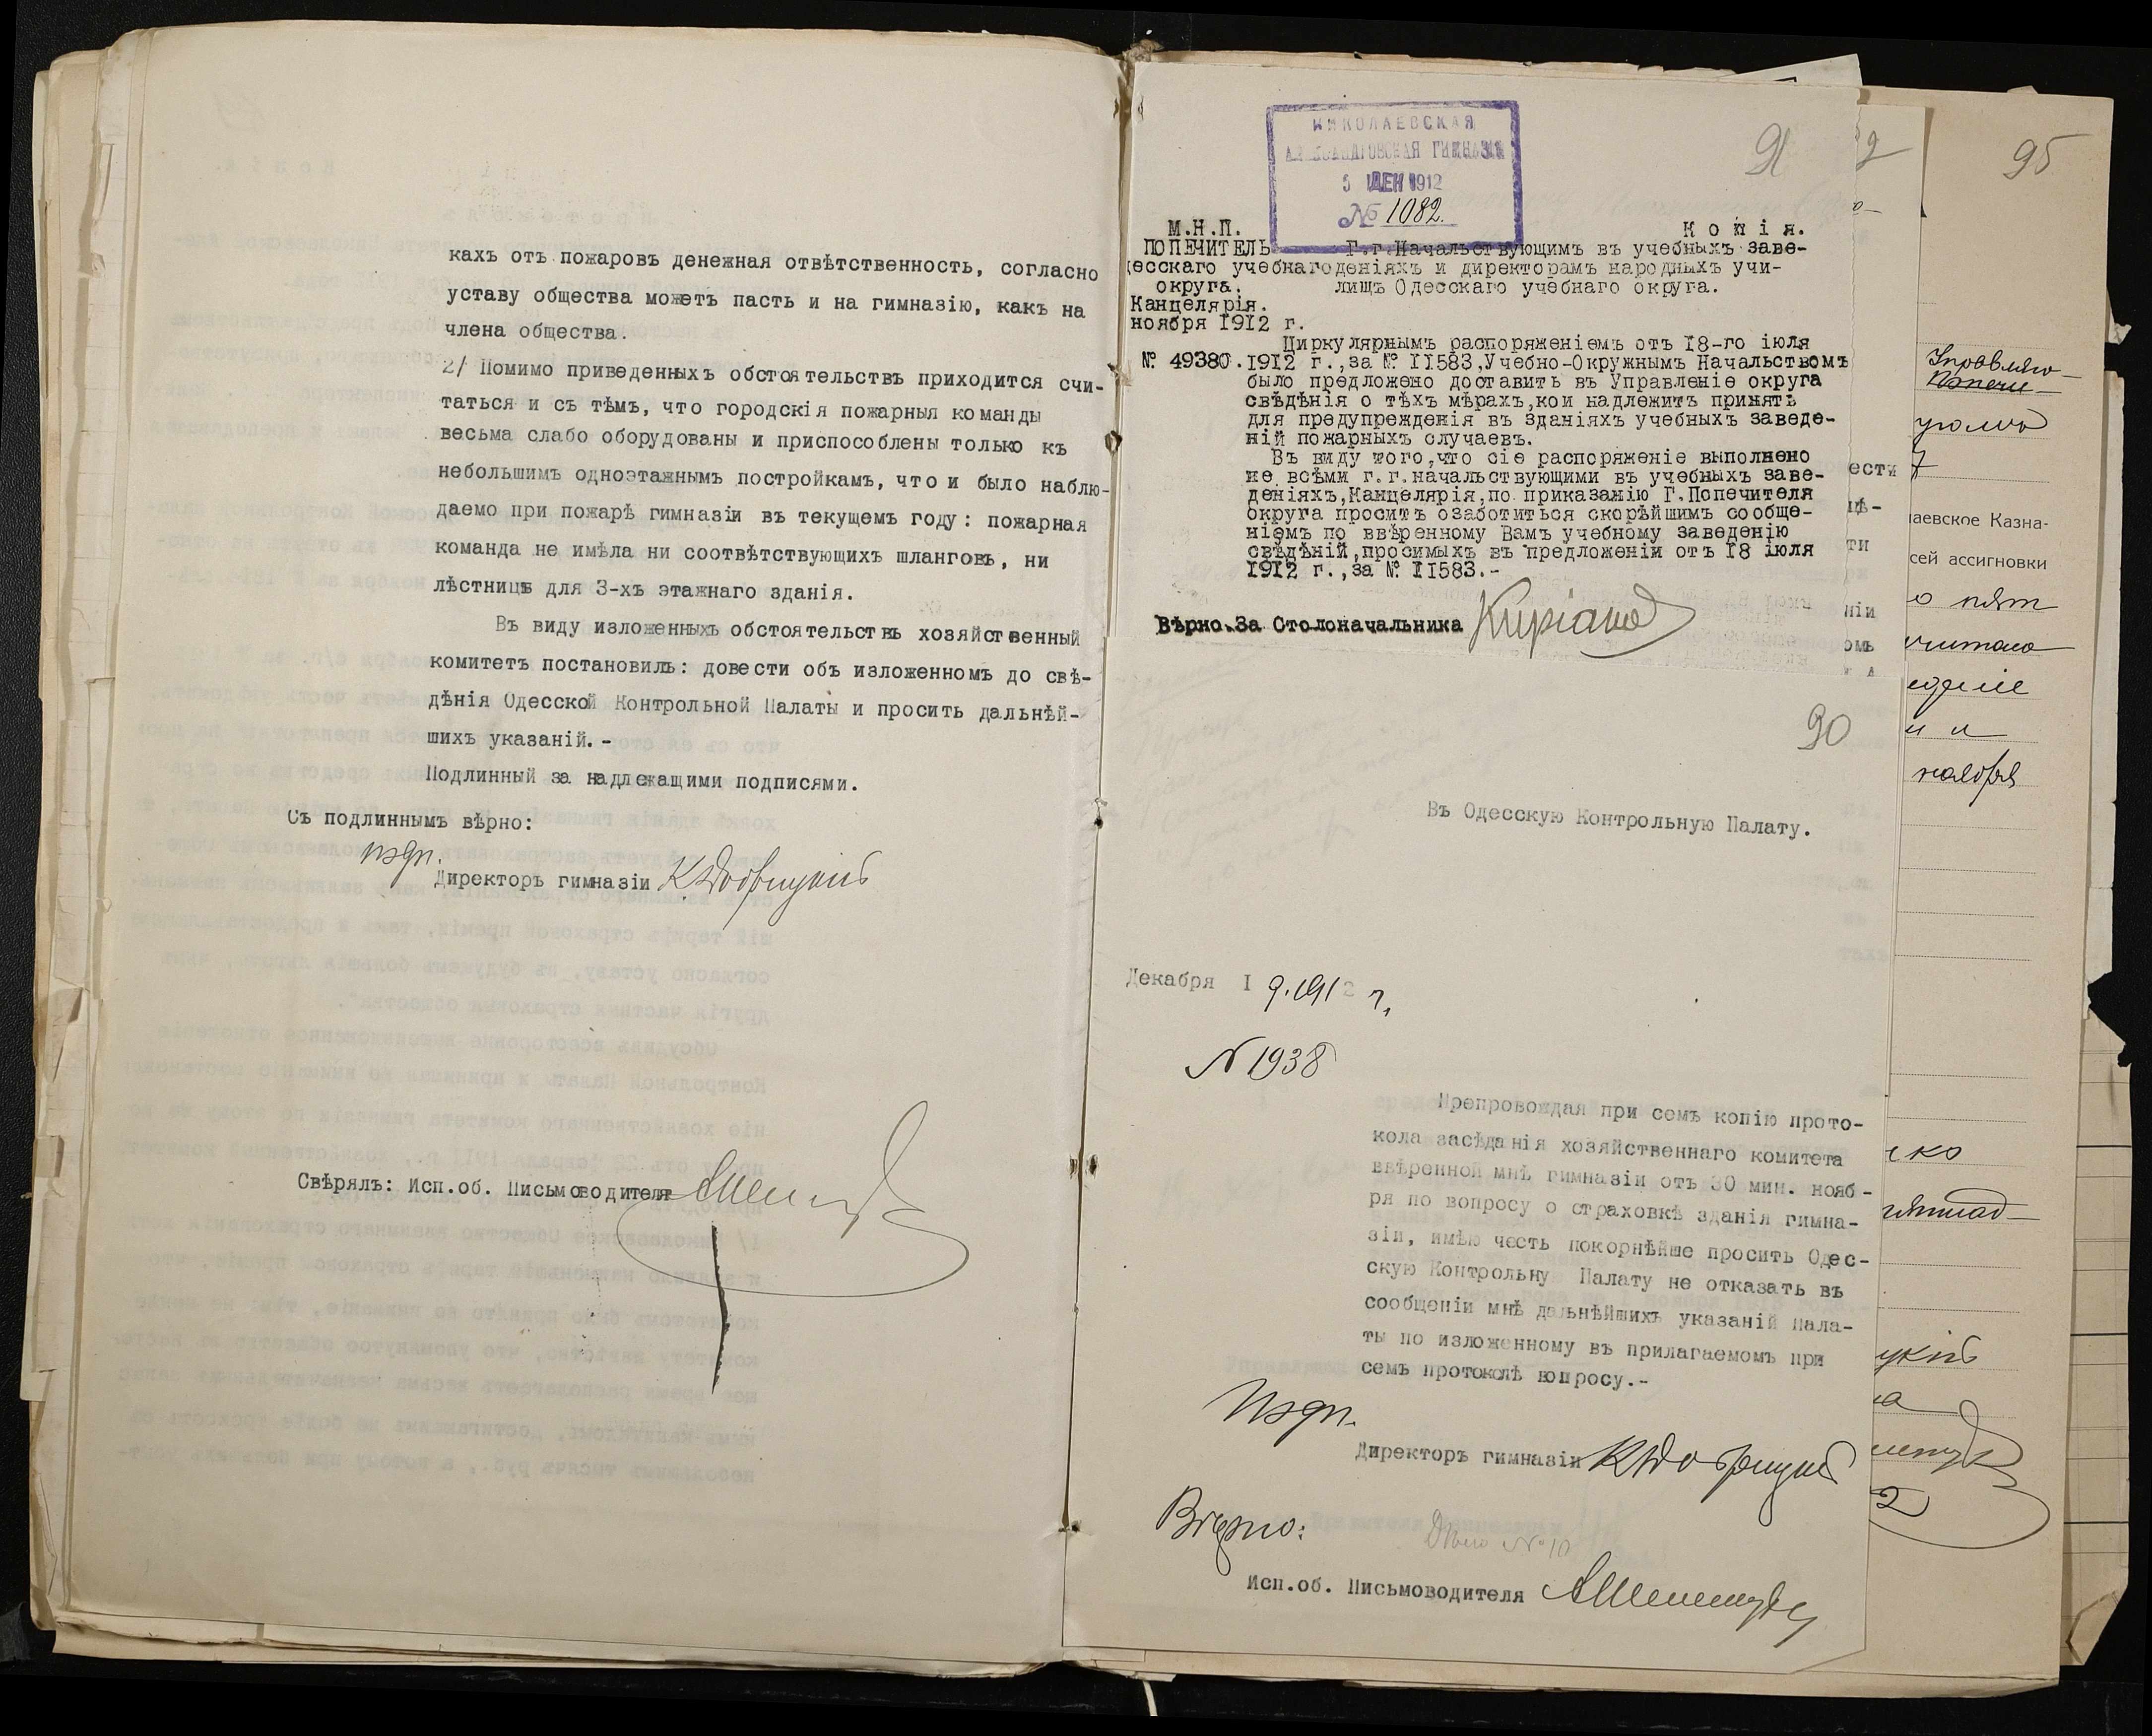 кахъ отъ пожаровъ денежная отвѣтственность, согласно
уставу общества можетъ пасть и на гимназію, какъ на
члена общества.
2/ Помимо приведенныхъ обстоятельствъ приходится счи-
таться и съ тѣмъ, что городскія пожарныя команды
весьма слабо оборудованы и приспособлены только къ
небольшимъ одноэтажнымъ постройкамъ, что и было наблю-
даемо при пожарѣ гимназіи въ текущемъ году: пожарная
команда не имѣла ни соотвѣтствующихъ шланговъ, ни
лѣстницъ для 3-хъ этажнаго зданія.
Въ виду изложенныхъ обстоятельствъ хозяйственный
комитетъ постановилъ: довести объ изложенномъ до свѣ-
дѣнія Одесской Контрольной Палаты и просить дальнѣй-
шихъ указаній.-
Подлинный за надлежащими подписями.
Съ подлиннымъ вѣрно:
подп.
Директоръ гимназіи
Свѣрялъ: Исп.об. Письмоводителя
НИКОЛАЕВСКАЯ
АЛЕКСАНДРОВСКАЯ ГИМНАЗІЯ
5 ДЕК 1912
№ 1082.
91
М.Н.П.
Копія.
ПОПЕЧИТЕЛЬ
Г.г.Начальствующимъ въ учебныхъ заве-
десскаго учебнаго
деніяхъ и директорамъ народныхъ учи-
округа.
лищъ Одесскаго учебнаго округа.
Канцелярія.
ноября 1912 г.
№ 49380.
Циркулярнымъ распоряженіемъ отъ 18-го іюля
1912 г.,за № 11583,Учебно-Окружнымъ Начальствомъ
было предложено доставить въ Управленіе округа
свѣдѣнія о тѣхъ мѣрахъ,кои надлежитъ принять
для предупрежденія въ зданіяхъ учебныхъ заведе-
ній пожарныхъ случаевъ.
Въ виду того,что сіе распоряженіе выполнено
не всѣми г.г.начальствующими въ учебныхъ заве-
деніяхъ,Канцелярія,по приказанію Г.Попечителя
округа проситъ озаботиться скорѣйшимъ сообще-
ніемъ по ввѣренному Вамъ учебному заведенію
свѣдѣній,просимыхъ въ предложеніи отъ 18 іюля
1912 г.,за № 11583.-
Вѣрно.За Столоначальника
90
Въ Одесскую Контрольную Палату.
Декабря 19.1912 г.
N 1938
Препровождая при семъ копію прото-
кола засѣданія хозяйственнаго комитета
ввѣренной мнѣ гимназіи отъ 30 мин. нояб-
ря по вопросу о страховкѣ зданія гимна-
зіи, имѣю честь покорнѣйше просить Одес-
скую Контрольну Палату не отказать въ
сообщеніи мнѣ дальнѣйшихъ указаній Пала-
ты по изложенному въ прилагаемомъ при
семъ протоколѣ вопросу.-
Подп.
Директоръ гимназіи
Вѣрно:
Исп.об. Письмоводителя
2
95
ести
аевское Казна-
сей ассигновки
ноября